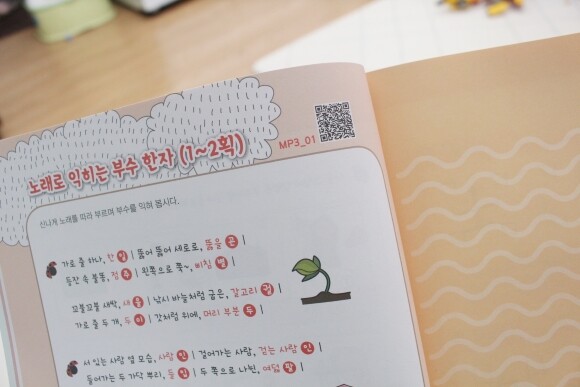 노래로 익히는 부수 한자 (1~2획)
MP3_01
신나게 노래를 따라 부르며 부수를 익혀 봅시다.
가로 줄 하나, 한 일 | 뚫어 뚫어 세로로, 뚫을 곤 |
등잔 속 불똥, 점 주 | 왼쪽으로 쭉~, 삐침 별 |
꼬불꼬불 새싹, 새 을 | 낚시 바늘처럼 굽은, 갈고리 궐 |
가로 줄 두 개, 두 이 | 갓처럼 위에, 머리 부분 두 |
서 있는 사람 옆 모습, 사람 인 | 걸어가는 사람, 걷는 사람 인 |
들어가는 두 가닥 뿌리, 들 입 | 두 쪽으로 나뉜, 여덟 팔 |